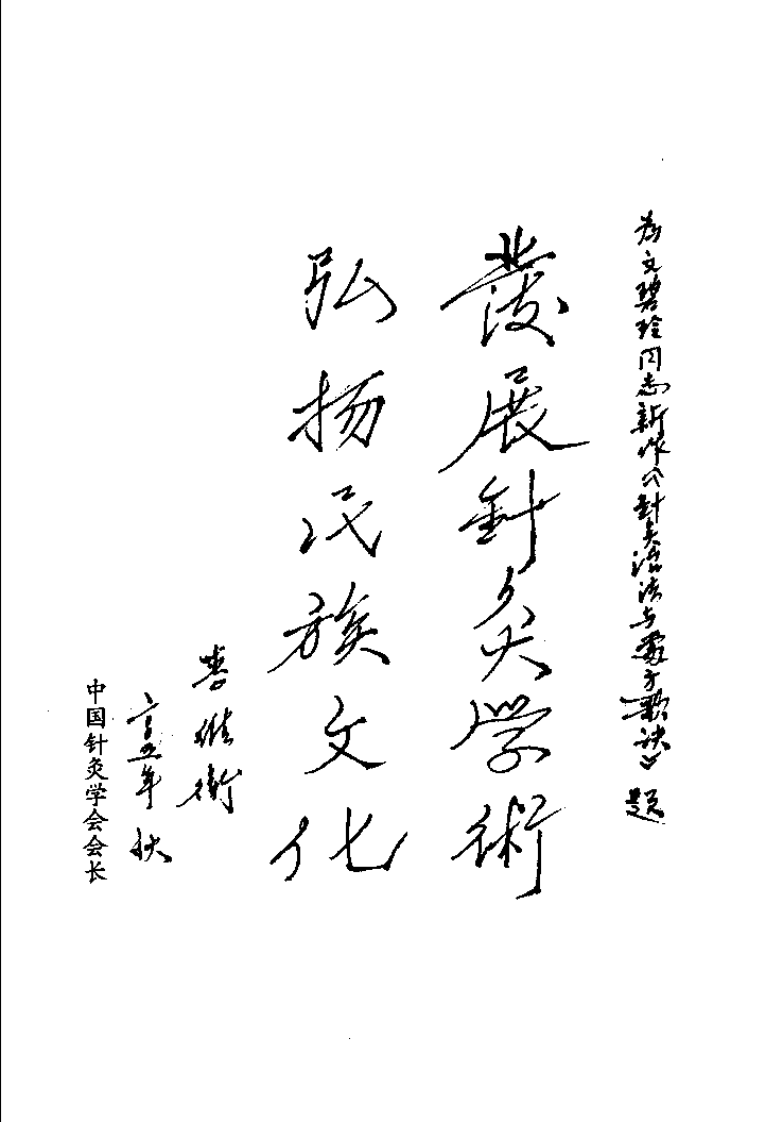 为文碧玲同志新作《針灸治法与處方歌诀》题
發展針灸學術
弘扬民族文化
李维衡
年秋
中国针灸学会会长